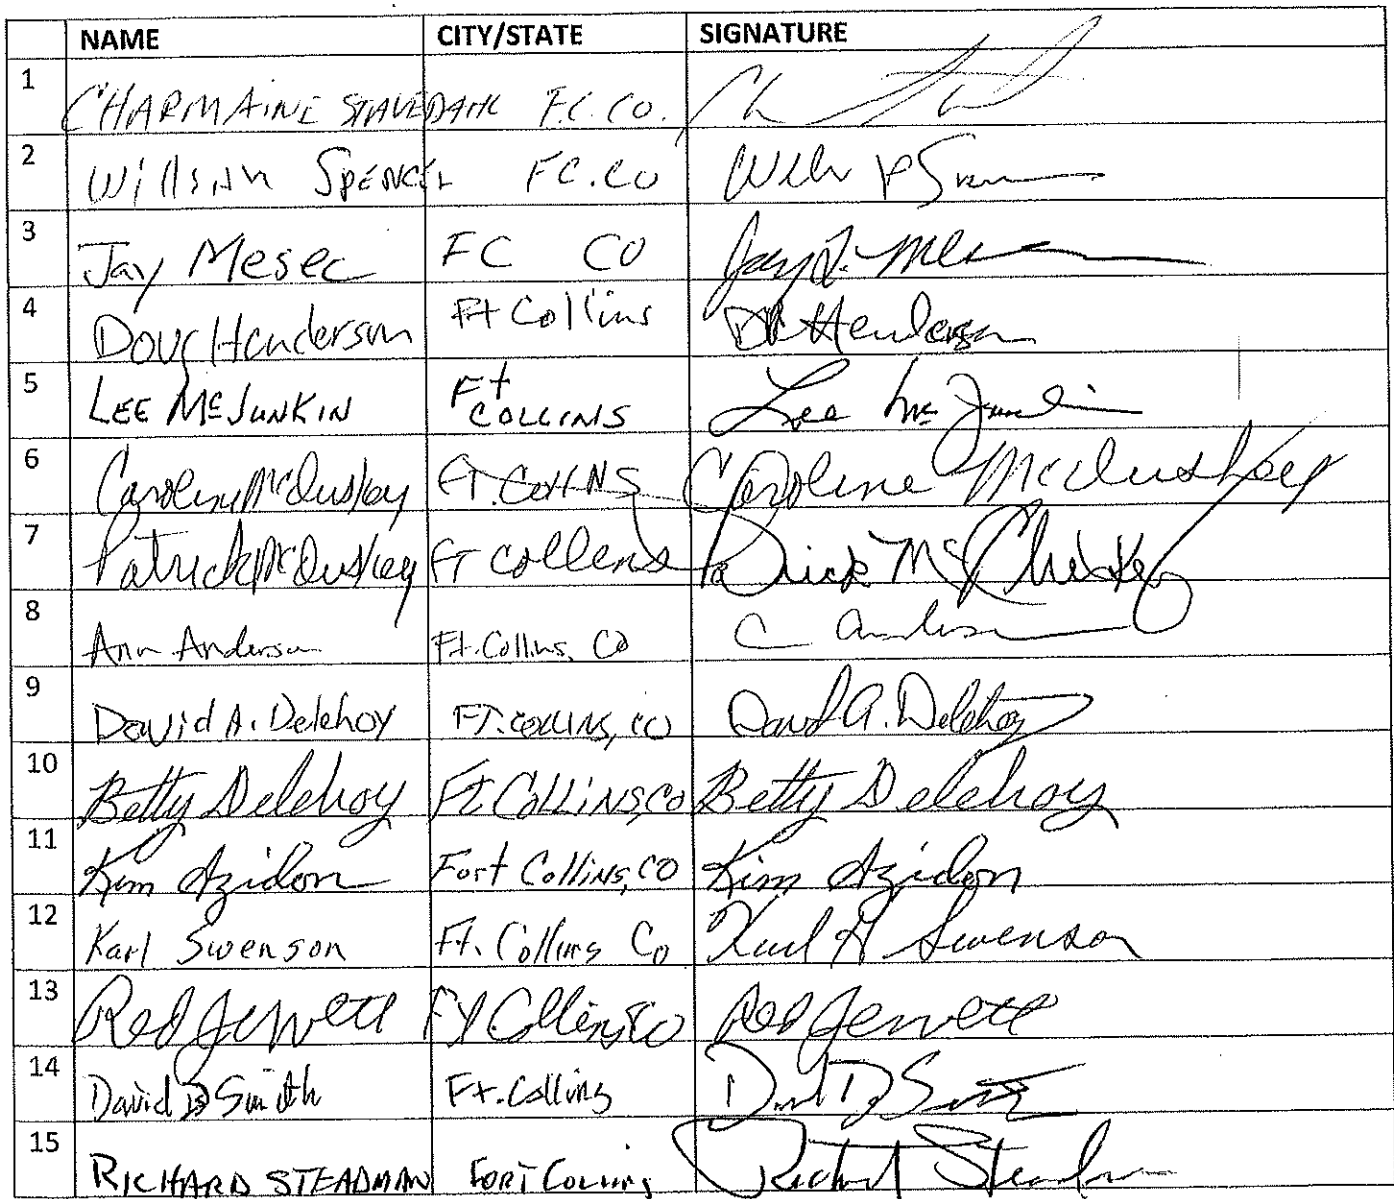 NAME CITY/STATE SIGNATURE
1 CHARMAINE STAVEDAHL F.C. CO.
2 William Spencer FC. CO
3 Jay Mesec FC CO Jay
4 Doug Henderson Ft Collins Henderson
5 LEE McJUNKIN Ft COLLINS Lee McJunkin
6 Caroline McCluskey FT. COLLINS Caroline McCluskey
7 Patrick McCluskey FT Collens Patrick McCluskey
8 Ann Anderson Ft. Collins, CO C Anderson
9 David A. Delehoy FT. COLLINS, CO David A. Delehoy
10 Betty Delehoy Ft. COLLINS, CO Betty Delehoy
11 Kim Azidon Fort Collins, CO Kim Azidon
12 Karl Swenson Ft. Collins Co Karl A Swenson
13 Red Jewett Ft Collins Co Red Jewett
14 David D Smith Ft. Collins David D Smith
15 RICHARD STEADMAN FORT COLLINS Richard Steadman